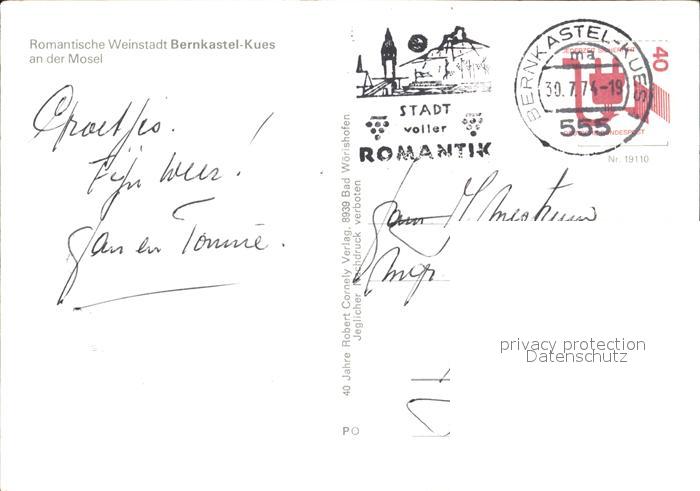 Romantische Weinstadt Bernkastel-Kues
an der Mosel
Groetjes.
Fijn weer!
Jan en Tonnie.
STADT
voller
ROMANTIK
BERNKASTEL-KUES
ma
30.7.74-19
555
JEDERZEIT SICHERHEIT
40
BUNDESPOST
Nr. 19110
40 Jahre Robert Cornely Verlag, 8939 Bad Wörishofen
Jeglicher Nachdruck verboten
PO
privacy protection
Datenschutz